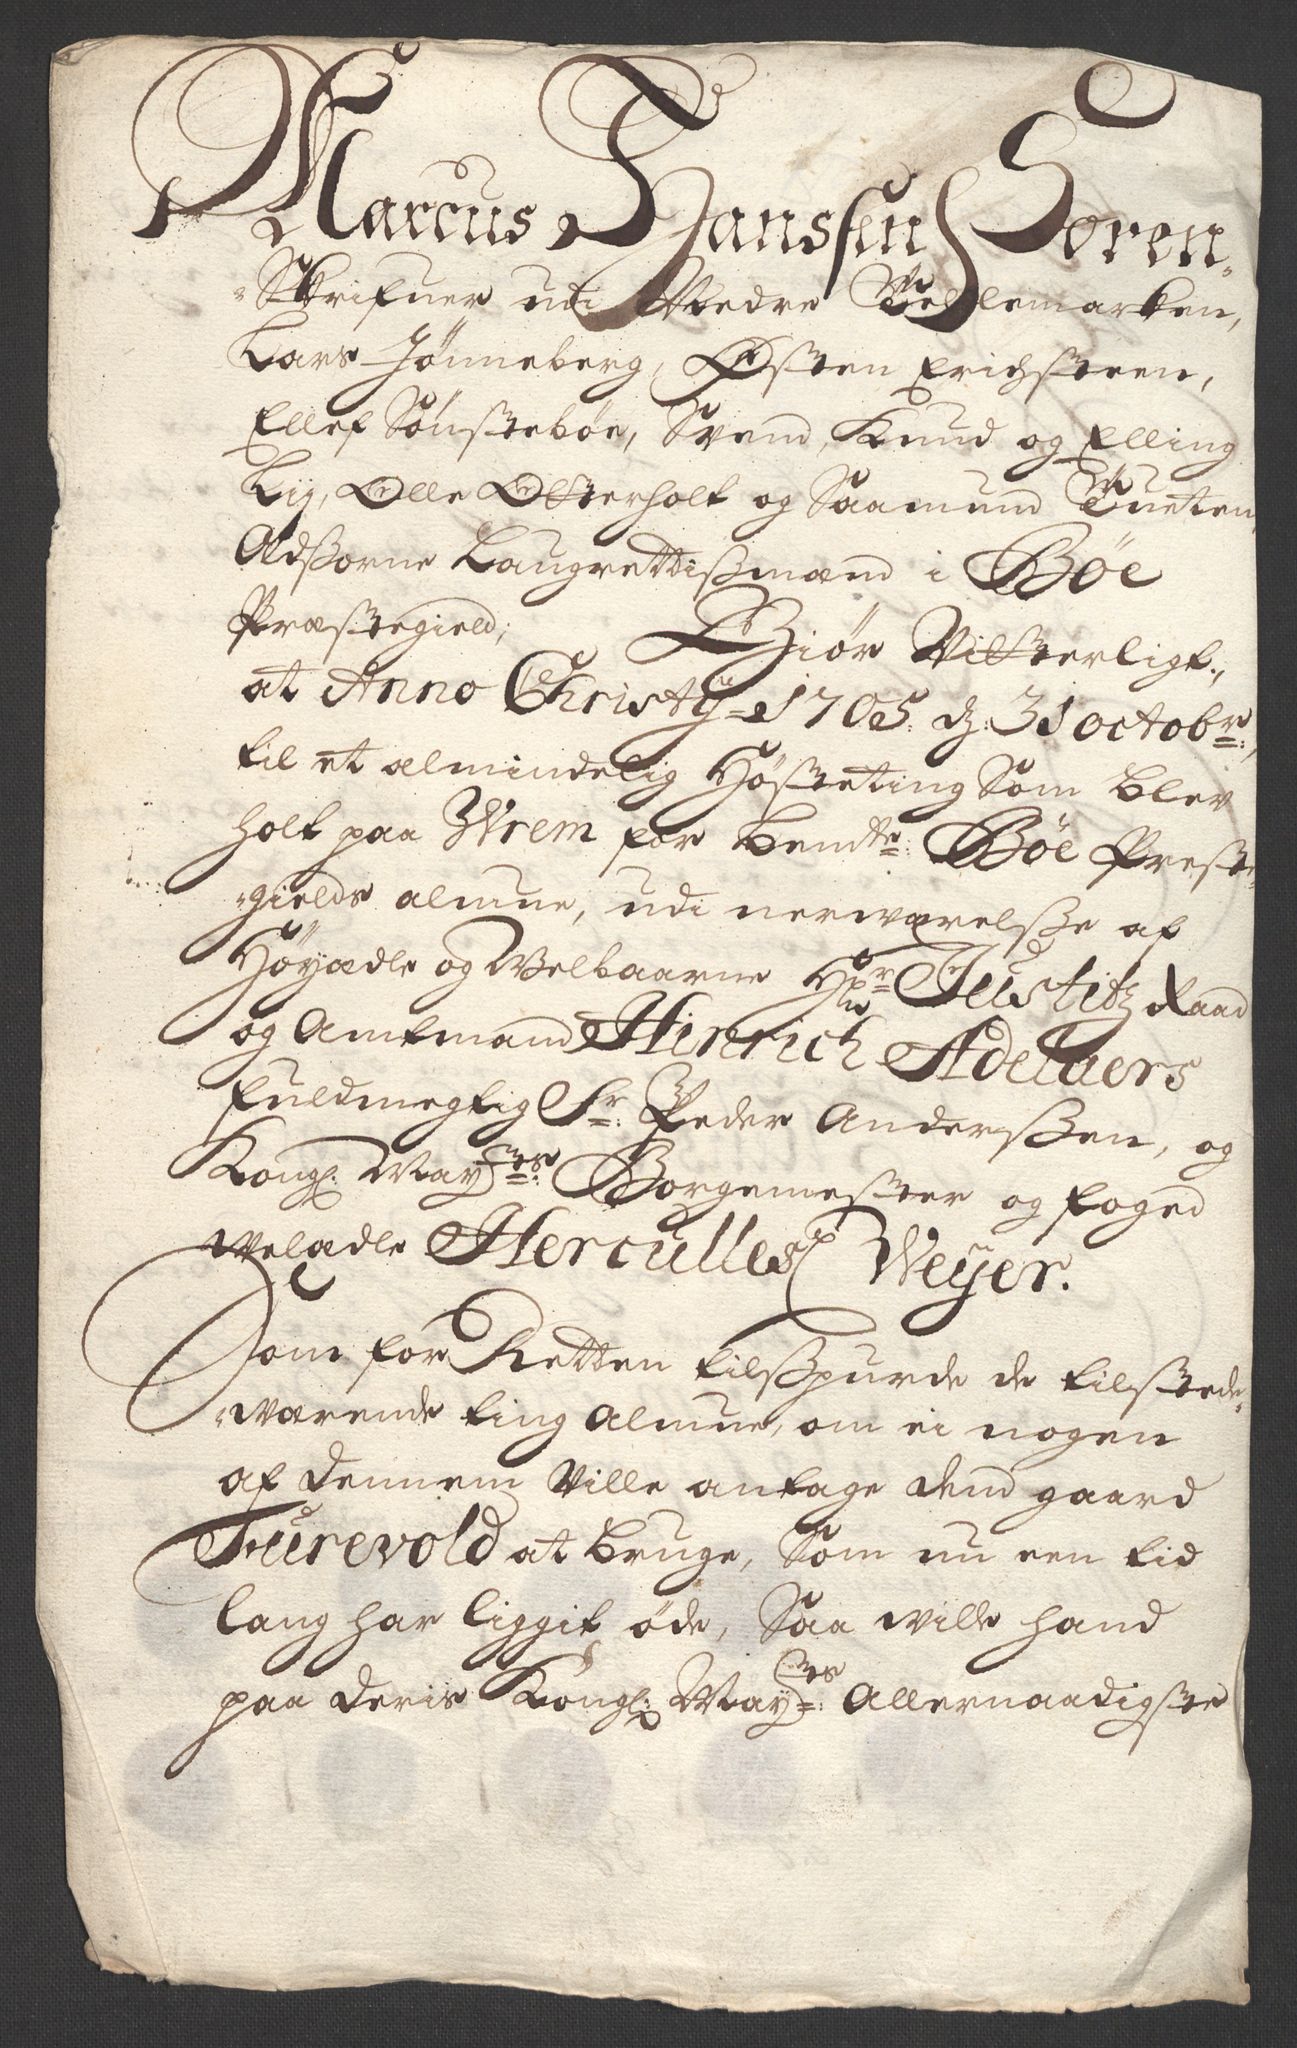 Marcus Hanssen Soren-
Skrifuer udi Nedre Tellemarken,
Lars Jønneberg, Østen Erichsteen,
Ellef Sønstebøe, Svend, Knud og Elling
Lij, Olle Otterholt og Saamund Tueten,
Edsorne Laugrettismænd i Bøe
Præstegield; Giør Vitterligt,
at Anno Christij 1705. d: 31 octobr:,
til et almindelig Høsteting Som blev
holt paa Wrem for bemte: Bøe Preste-
gields almue, udi nerværelsse af
Høyædle og Welbaarne Hr Justitz Raad
og Amtmand Hinrich Adelaers
fuldmegtig Sr: Peder Anderssen, og
Kongl: Maytes: Borgemester og foged
Welædle Herculles Weyer.
Som for Retten tilspurde de tilstede-
værende ting Almue, om ei nogen
af dennem Ville antage dend gaard
Furevold at bruge, Som nu een tid
lang har liggit øde, Saa wille hand
paa deris Kongl: Maytes: Allernaadigste